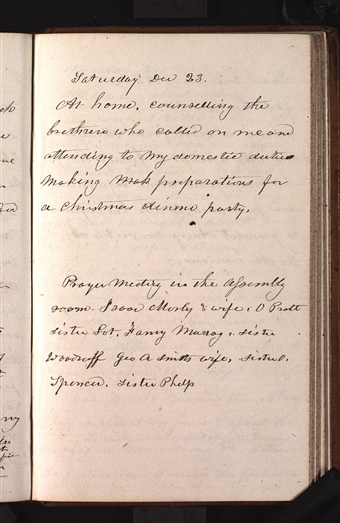 Saturday Dec 23.
At home, counselling the
brethren who called on me and
attending to my domestic duties
making preparations for
a christmas dinner party.
Prayer Meeting in the Assembly
room Isaac Morly & wife, O Pratt
sister Lot, Fanny Murray, sister
Woodruff Geo A smiths wife, sister
Spencer, sister Phelps